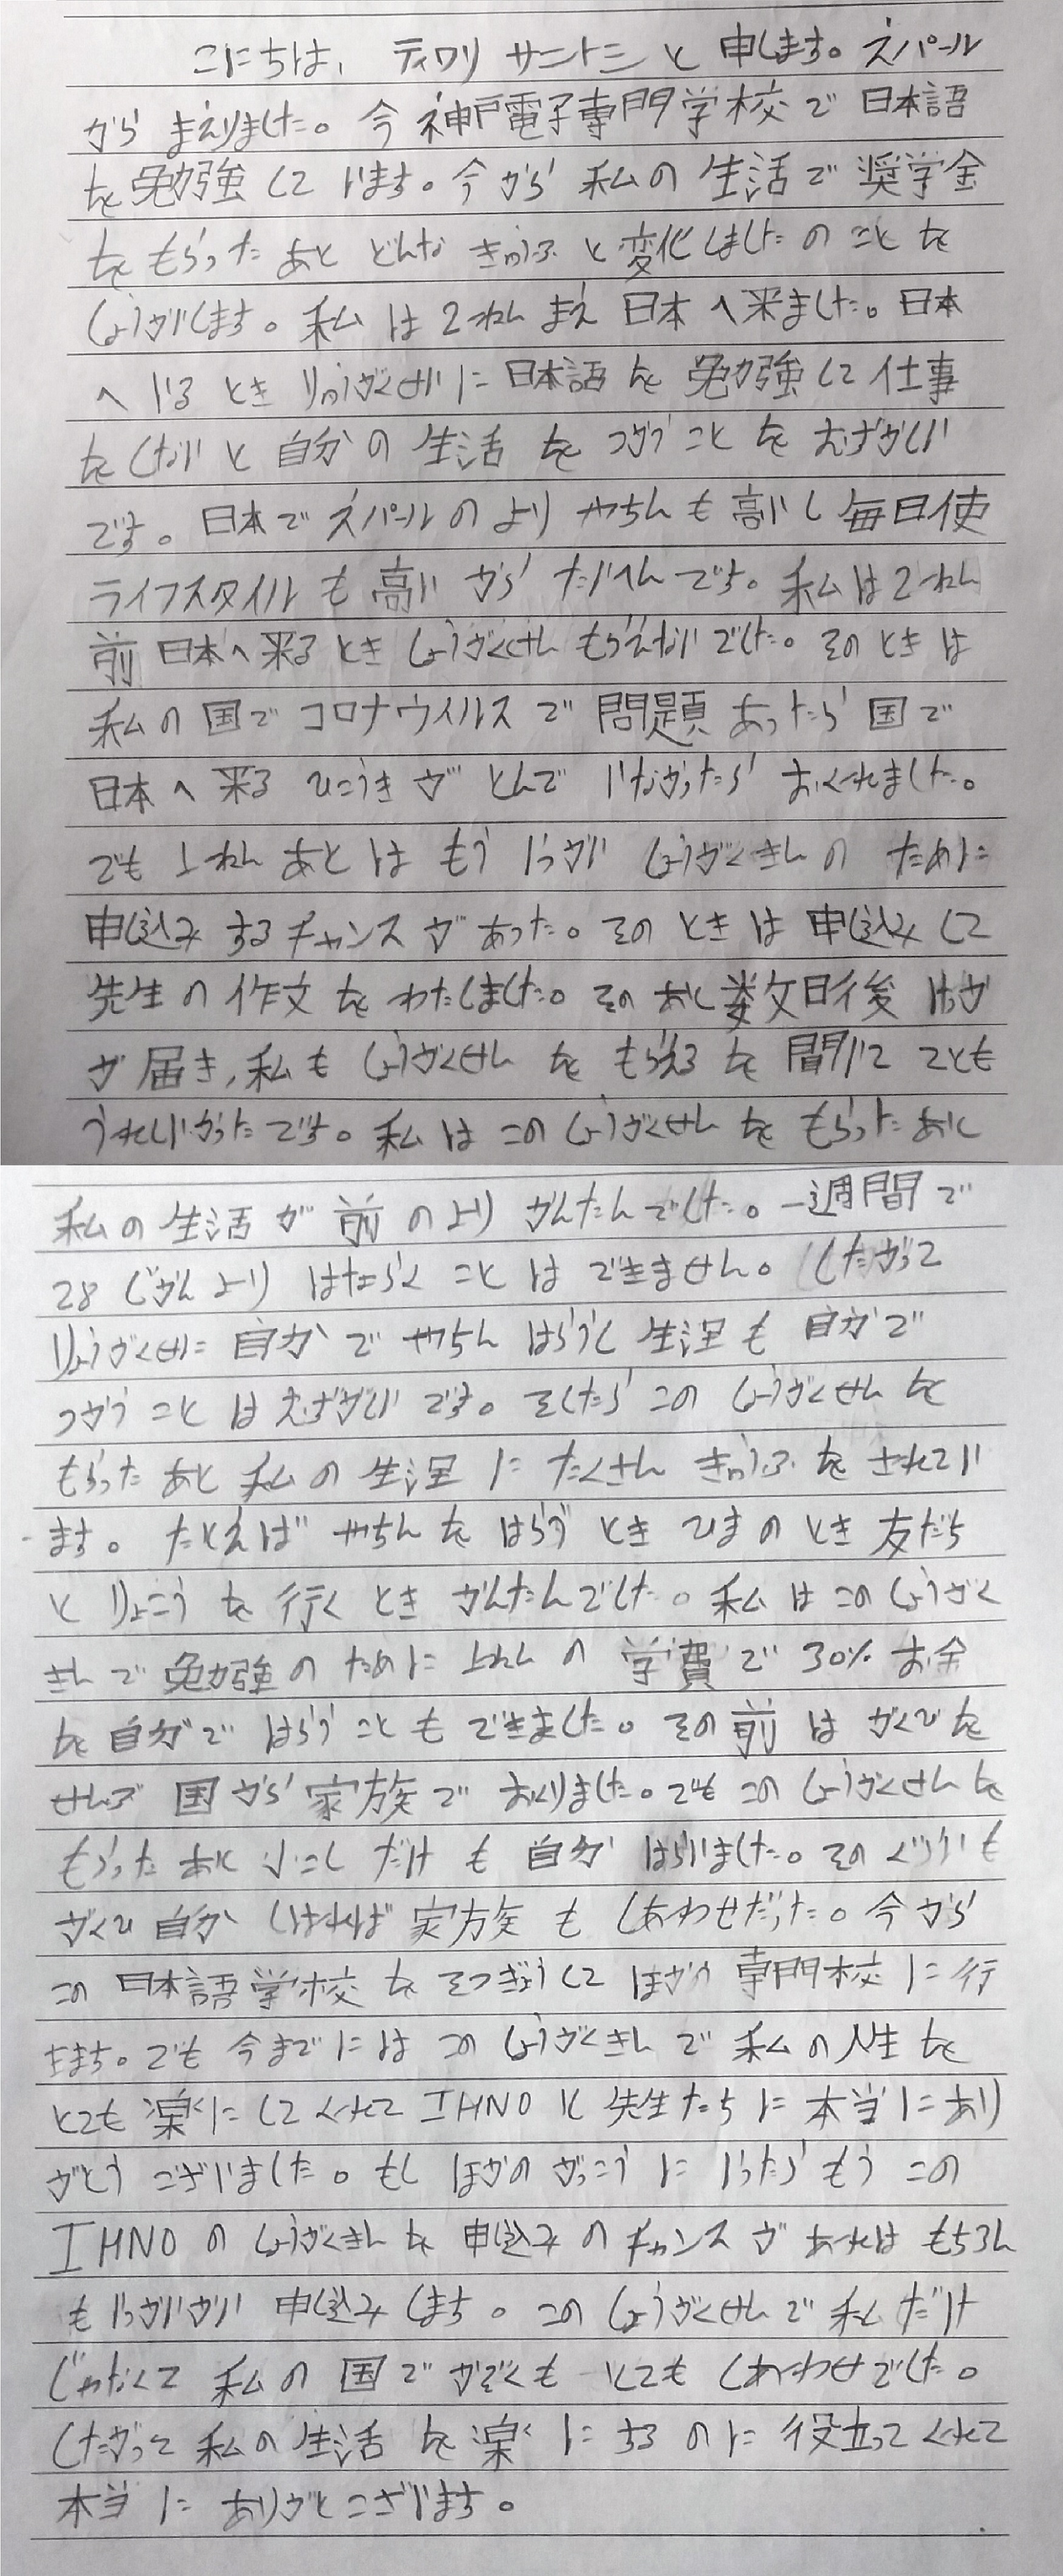 こにちは、ティワリ サントシ と 申します。ネパール
から まえりました。今 神戸電子専門学校で 日本語
を 勉強して います。今から 私の 生活で 奨学金
を もらった あと どんな きゅうふ と 変化しましたの ことを
しょうがいします。私は 2ねん まえ 日本へ来ました。日本
へ いる とき りゅうがくせいに 日本語を 勉強して 仕事
を しないと 自分の 生活 を つがう こと を むずかしい
です。日本で ネパールの より やちんも 高いし 毎日使
ライフスタイル も 高い から たいへんです。私は2ねん
前 日本へ来る とき しょうがくせん もらえないでした。そのときは
私の 国で コロナウイルスで 問題 あったら 国で
日本へ 来る ひこうき が とんで いなかったら おくれました。
でも 1ねん あとは もう いっかい しょうがくきんの ために
申し込み する チャンス が あった。そのときは 申し込み して
先生の 作文 を わたしました。その あと 数日後 はが
が 届き、私も しょうがくせん を もらえるを 聞いて とても
うれしいかったです。私は この しょうがくせん を もらった あと
私の 生活 が 前の より かんたんでした。一週間で
28 じかん より はたらく ことは できません。したがって
りょうがくせに 自分で やちん はらうし 生活も 自分で
つがう ことは むずがしい です。そしたら この しょうがくせん を
もらった あと 私の 生活 に たくさん きゅうふ を されてい
ます。たとえば やちんを はらう とき ひまの とき 友だち
と りょこう を 行く とき かんたんでした。私は この しょうがく
きんで 勉強の ために 1ねんの 学費で 30% お金
を 自分で はらう ことも できました。その前は がくひを
せんぶ 国から 家族で おくりました。でも この しょうがくせんを
もらった あと すこし だけ も 自分 はらいました。その ぐらいも
がくひ 自分 しはれば 家族 も しあわせだった。今から
この 日本語学校 を そつぎょうして ほかの 専門校に 行
きます。でも 今までには この しょうがくきんで 私の人生 を
とても 楽に して くれて IHNO と 先生たちに 本当に あり
がとう ございました。もし ほかの がっこう に いったら もう この
IHNO の しょうがくきん を 申し込みの チャンス が あれは もちろん
も いっかいかい 申し込み します。この しょうがくせんで 私 だけ
じゃなくて 私の 国で かぞくも とても しあわせでした。
したがって 私の 生活 を 楽 に するのに 役立って くれて
本当に ありがとございます。